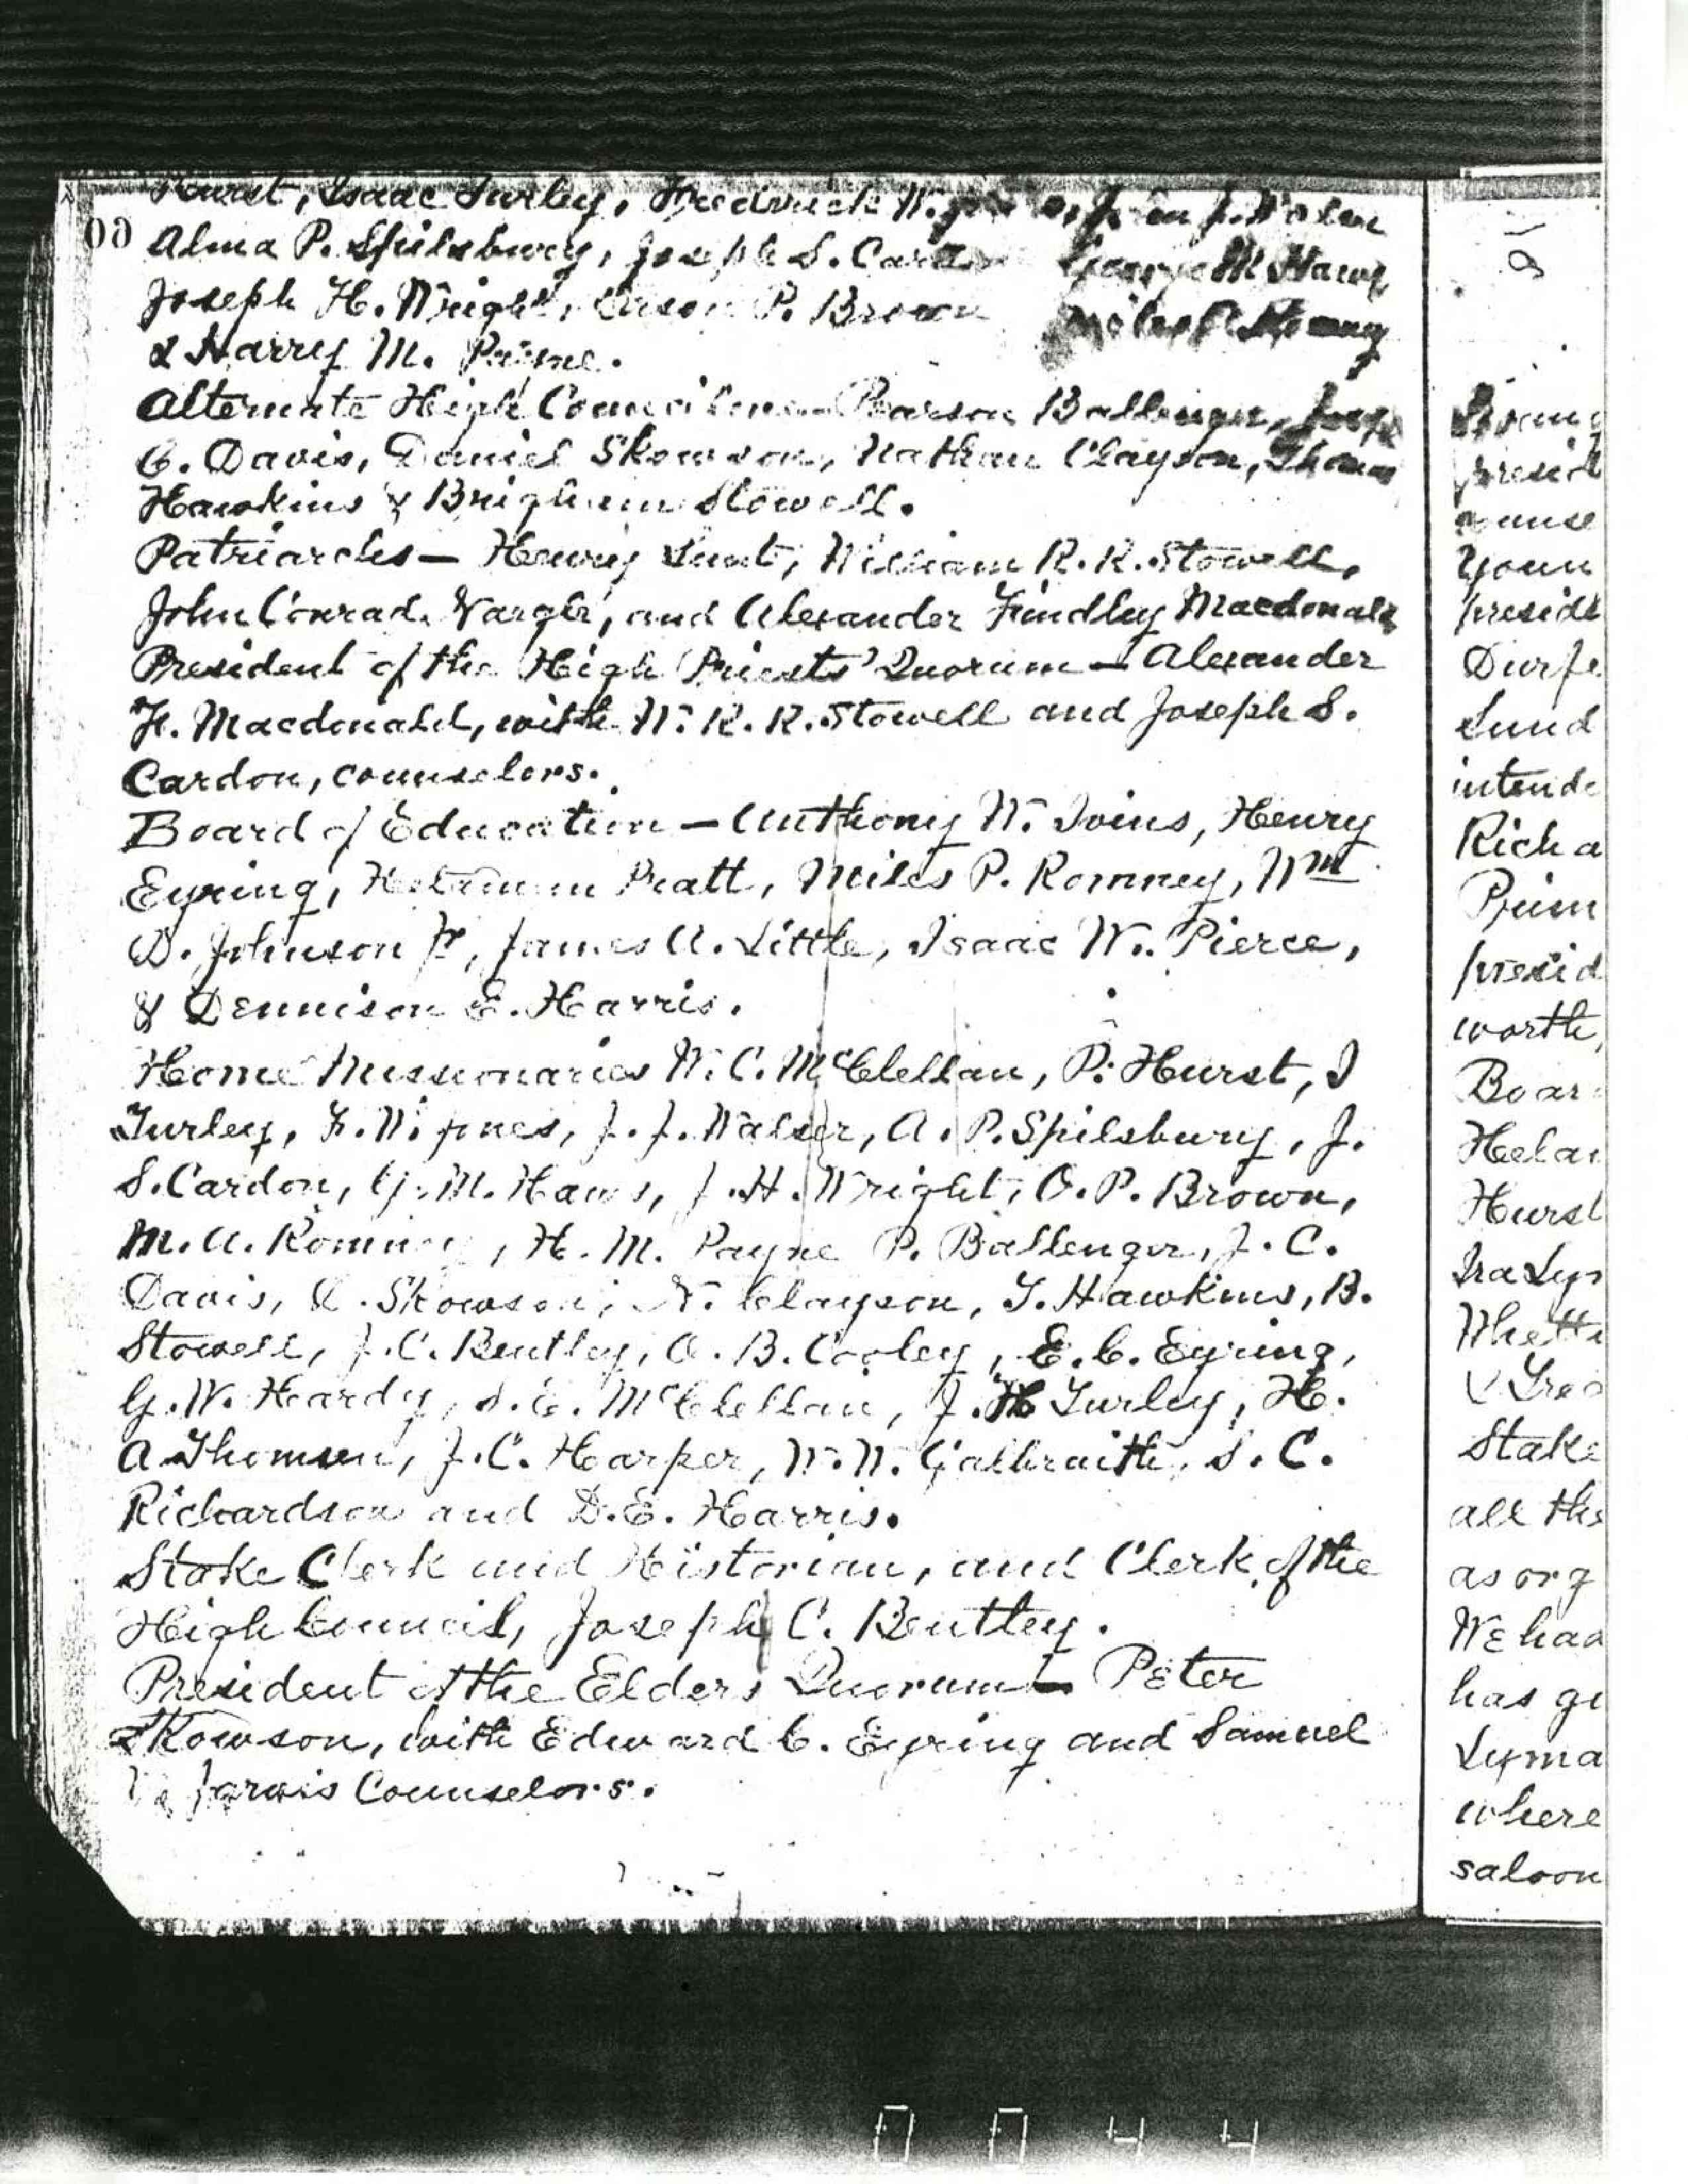 Hurst, Isaac Turley, Fredrick W. Jones, John J. Walser
60 Alma P. Spilsbury, Joseph S. Cardon George M Haws
Joseph H. Wright, Orson P. Brown Miles A. Romney
& Harry M. Payne.
Alternate High Councilors — Pearson Ballenger,
C. Davis, Daniel Skowson, Nathan Clayson, Thomas
Hawkins & Brigham Stowell.
Patriarchs — Henry Lunt, William R. R. Stowell,
John Conrad Nargle, and Alexander Findley Macdonald
President of the High Priests' Quorum — Alexander
F. Macdonald, with W. R. R. Stowell and Joseph S.
Cardon, counselors.
Board of Education — Anthony W. Ivins, Henry
Eyring, Helaman Pratt, Miles P. Romney, Wm
D. Johnson Jr, James A. Little, Isaac W. Pierce,
& Dennison E. Harris.
Home Missionaries W. C. McClellan, P. Hurst, I
Turley, F. W. Jones, J. J. Walser, A. P. Spilsbury, J.
S. Cardon, G. M. Haws, J. H. Wright, O. P. Brown,
M. A. Romney, H. M. Payne P. Ballenger, J. C.
Davis, D. Skowson, N. Clayson, T. Hawkins, B.
Stowell, J. C. Bentley, A. B. Cooley, E. C. Eyring,
G. W. Hardy, S. E. McClellan, J. H Turley, H.
A Thomsen, J. C. Harper, W. W. Galbraith, S. C.
Richardson and D. E. Harris.
Stake Clerk and Historian, and Clerk of the
High Council, Joseph C. Bentley.
President of the Elders Quorum — Peter
Skowson, with Edward C. Eyring and Samuel
Jarvis Counselors.
61
presid
Youn
presidt
Durfe
Lund
intende
Richa
Prim
presid
worth,
Boar
Helar
Hurst
Ira Lyn
Whette
Stake
all the
as org
We had
has gi
Lyma
where
saloon
0044